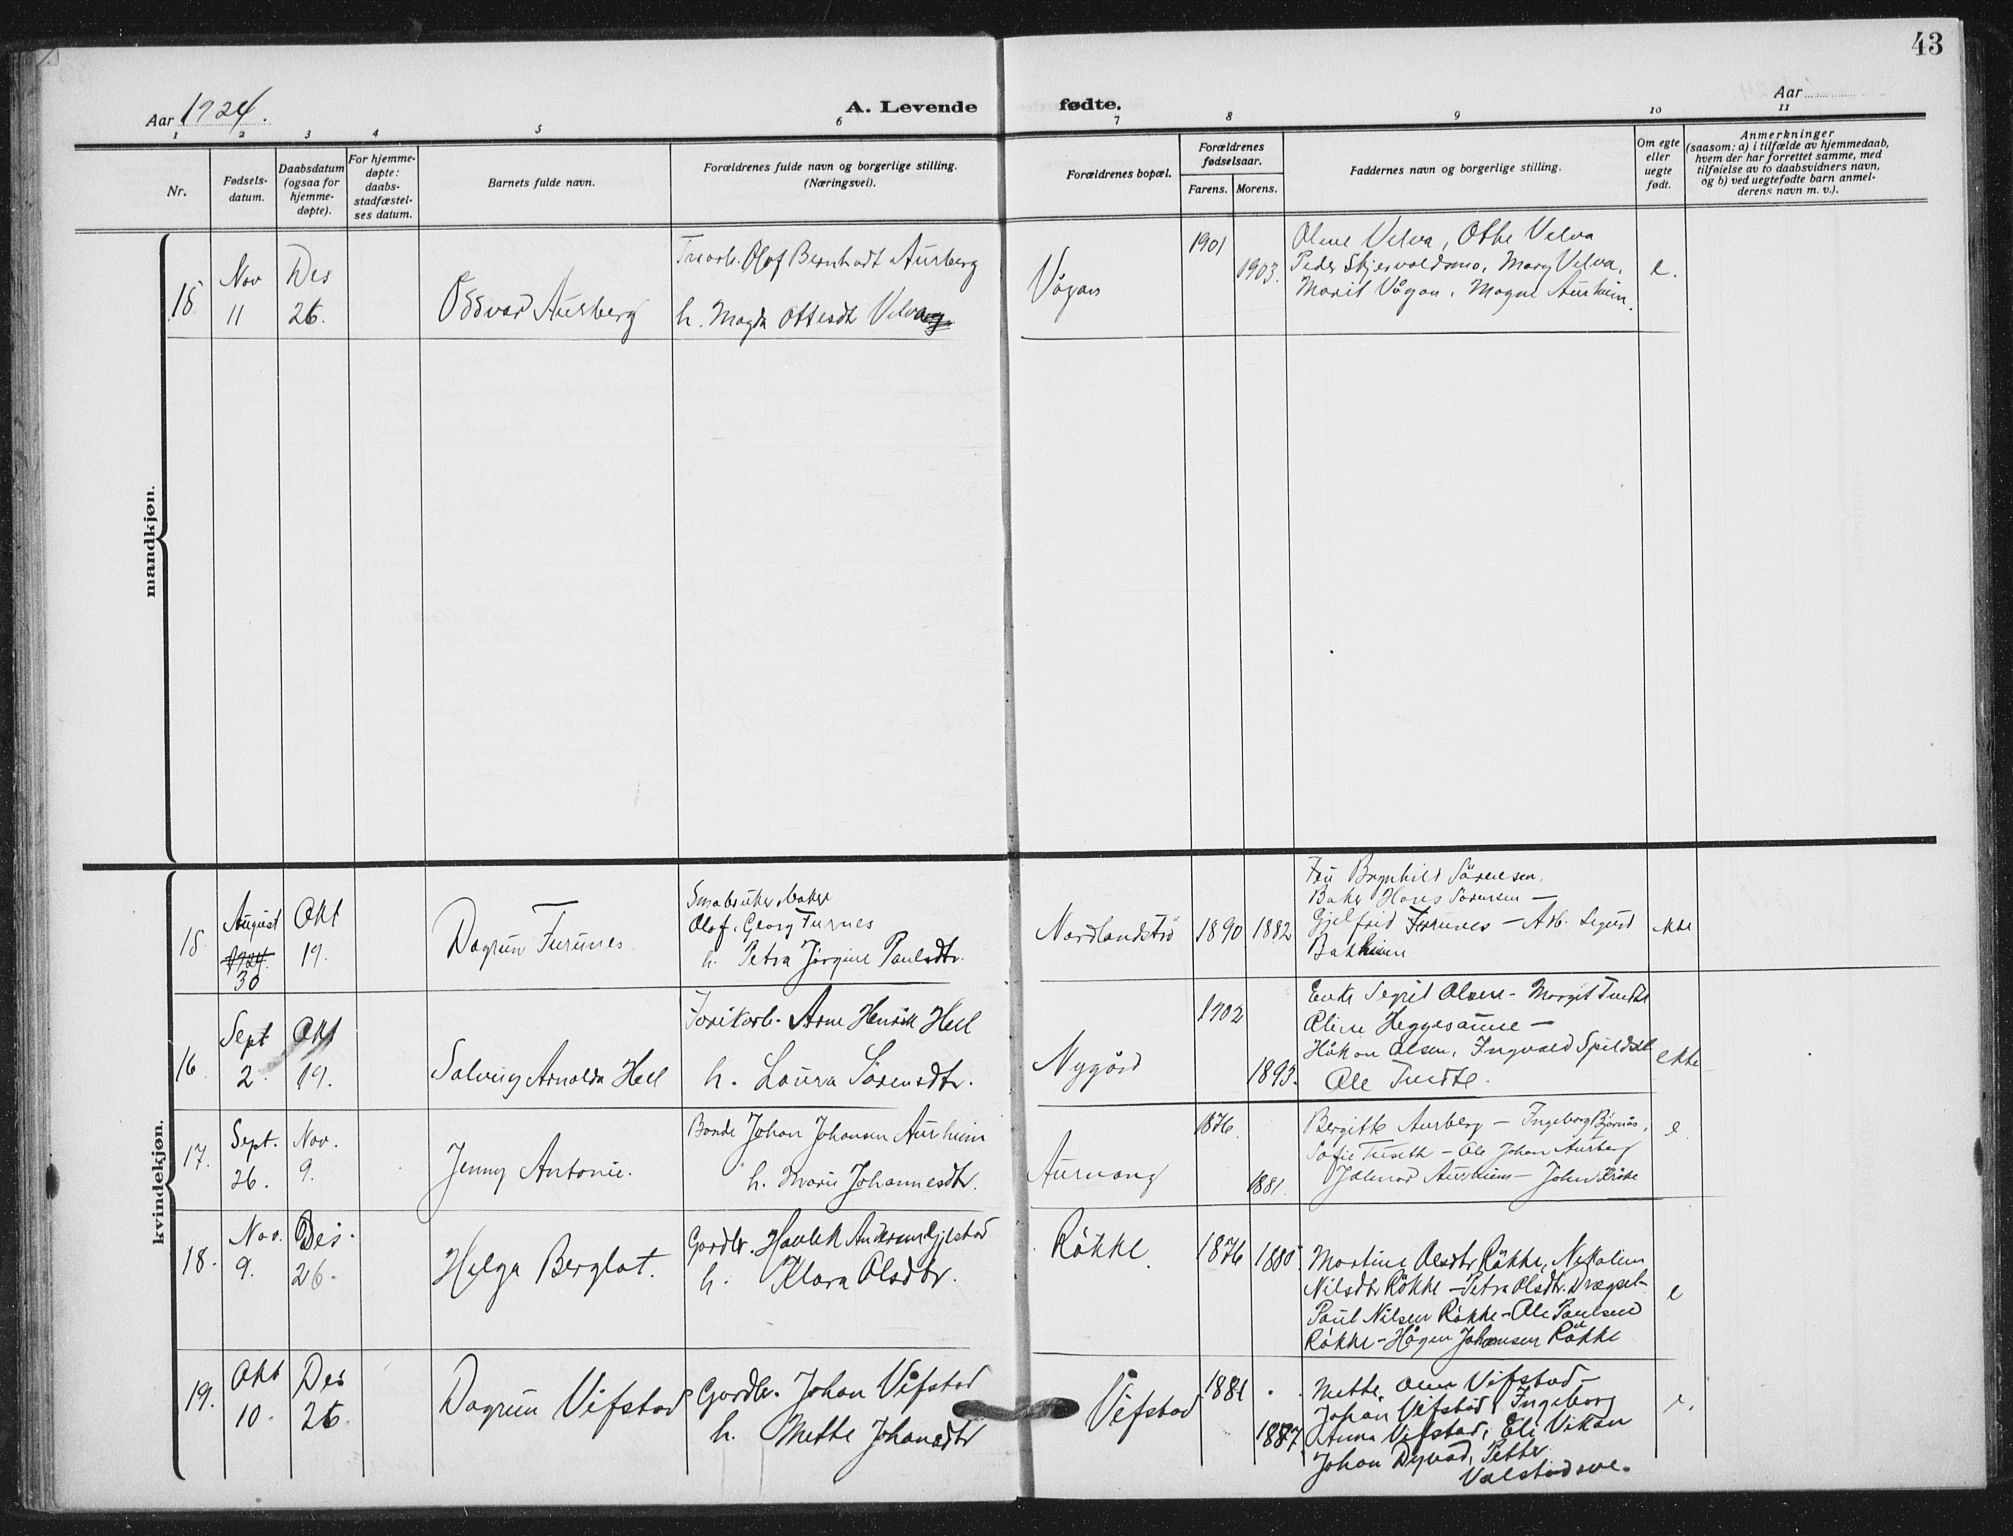 43
Aar 1924.
A. Levende fødte.
Aar
1 2 3 4 5 6 7 8 9 10 11
Nr.
Fødsels-
datum.
Daabsdatum
(ogsaa for
hjemme-
døpte).
For hjemme-
døpte:
daabs-
stadfæstel-
ses datum.
Barnets fulde navn.
Forældrenes fulde navn og borgerlige stilling.
(Næringsvei).
Forældrenes bopæl.
Forældrenes
fødselsaar.
Farens. Morens.
Faddernes navn og borgerlige stilling.
Om egte
eller
uegte
født.
Anmerkninger
(saasom: a) i tilfælde av hjemmedaab,
hvem der har forrettet samme, med
tilføielse av to daabsvidners navn,
og b) ved uegtefødte barn anmel-
derens navn m. v.).
mandkjøn.
15.
Nov
11
Des
26.
Oddvar Aursberg
Olof Bernhadt Aursberg
h. Magda Ottesdt Velvang
Vågan
1901
1903.
Oline Velva, Otte Velva
Peder Skjesvoldsmo, Mary Velva,
Marit Vågan, Magne Aurheim.
e.
kvindekjøn.
15
August
1924.
30
Okt
19.
Dagrun Furunes
Olof Georg Furnes
h. Petra Jørgine Paulsdtr.
Nordlandstrø
1890
1882
Fru Brynhild Sörensen.
Baker Hans Sorensen —
Gjelfrid Furunes — Arb. Sigurd
Bakheim
ekte
16.
Sept
2.
Okt
19.
Solveig Arnolda Hell
Arne Henrik Hell
h. Laura Sörensdtr.
Nygård
1902
1893.
Enke Sigrid Olsen - Margit
Oline —
Håkon Olsen, Ingvald
Ole
ekte
17.
Sept.
26.
Nov.
9.
Jenny Antonie.
Bonde Johan Johansen Aurheim
h. Marie Johannesdtr.
Aurvang
1876.
1881.
Bergitte Aursberg — Ingeborg Bjørnås,
Sofie — Ole Johan Aursberg
Hjalmar Aurheim — John
e.
18.
Nov.
9.
Des.
26.
Helga Berglot.
Gardbr. Hovlek Andersen Gjelstad
h. Klara Olsdtr.
Røkke.
1876
1880
Martine Olsdtr Røkke, Nikoline
Nilsdtr Røkke — Petra Olsdtr.
Paul Nilsen Røkke — Ole Paulsen
Røkke — Hågen Johansen Røkke
e
19.
Okt
10.
Des
26.
Dagrun Vifstad
Gardbr. Johan Vifstad
h. Mette Johansdtr
Vifstad
1881
1887.
Mette, Oline Vifstad —
Johan Vifstad, Ingeborg
Anna Vifstad, Eli Vikan
Johan Dyvad, Petter
Valstadsve.
e.